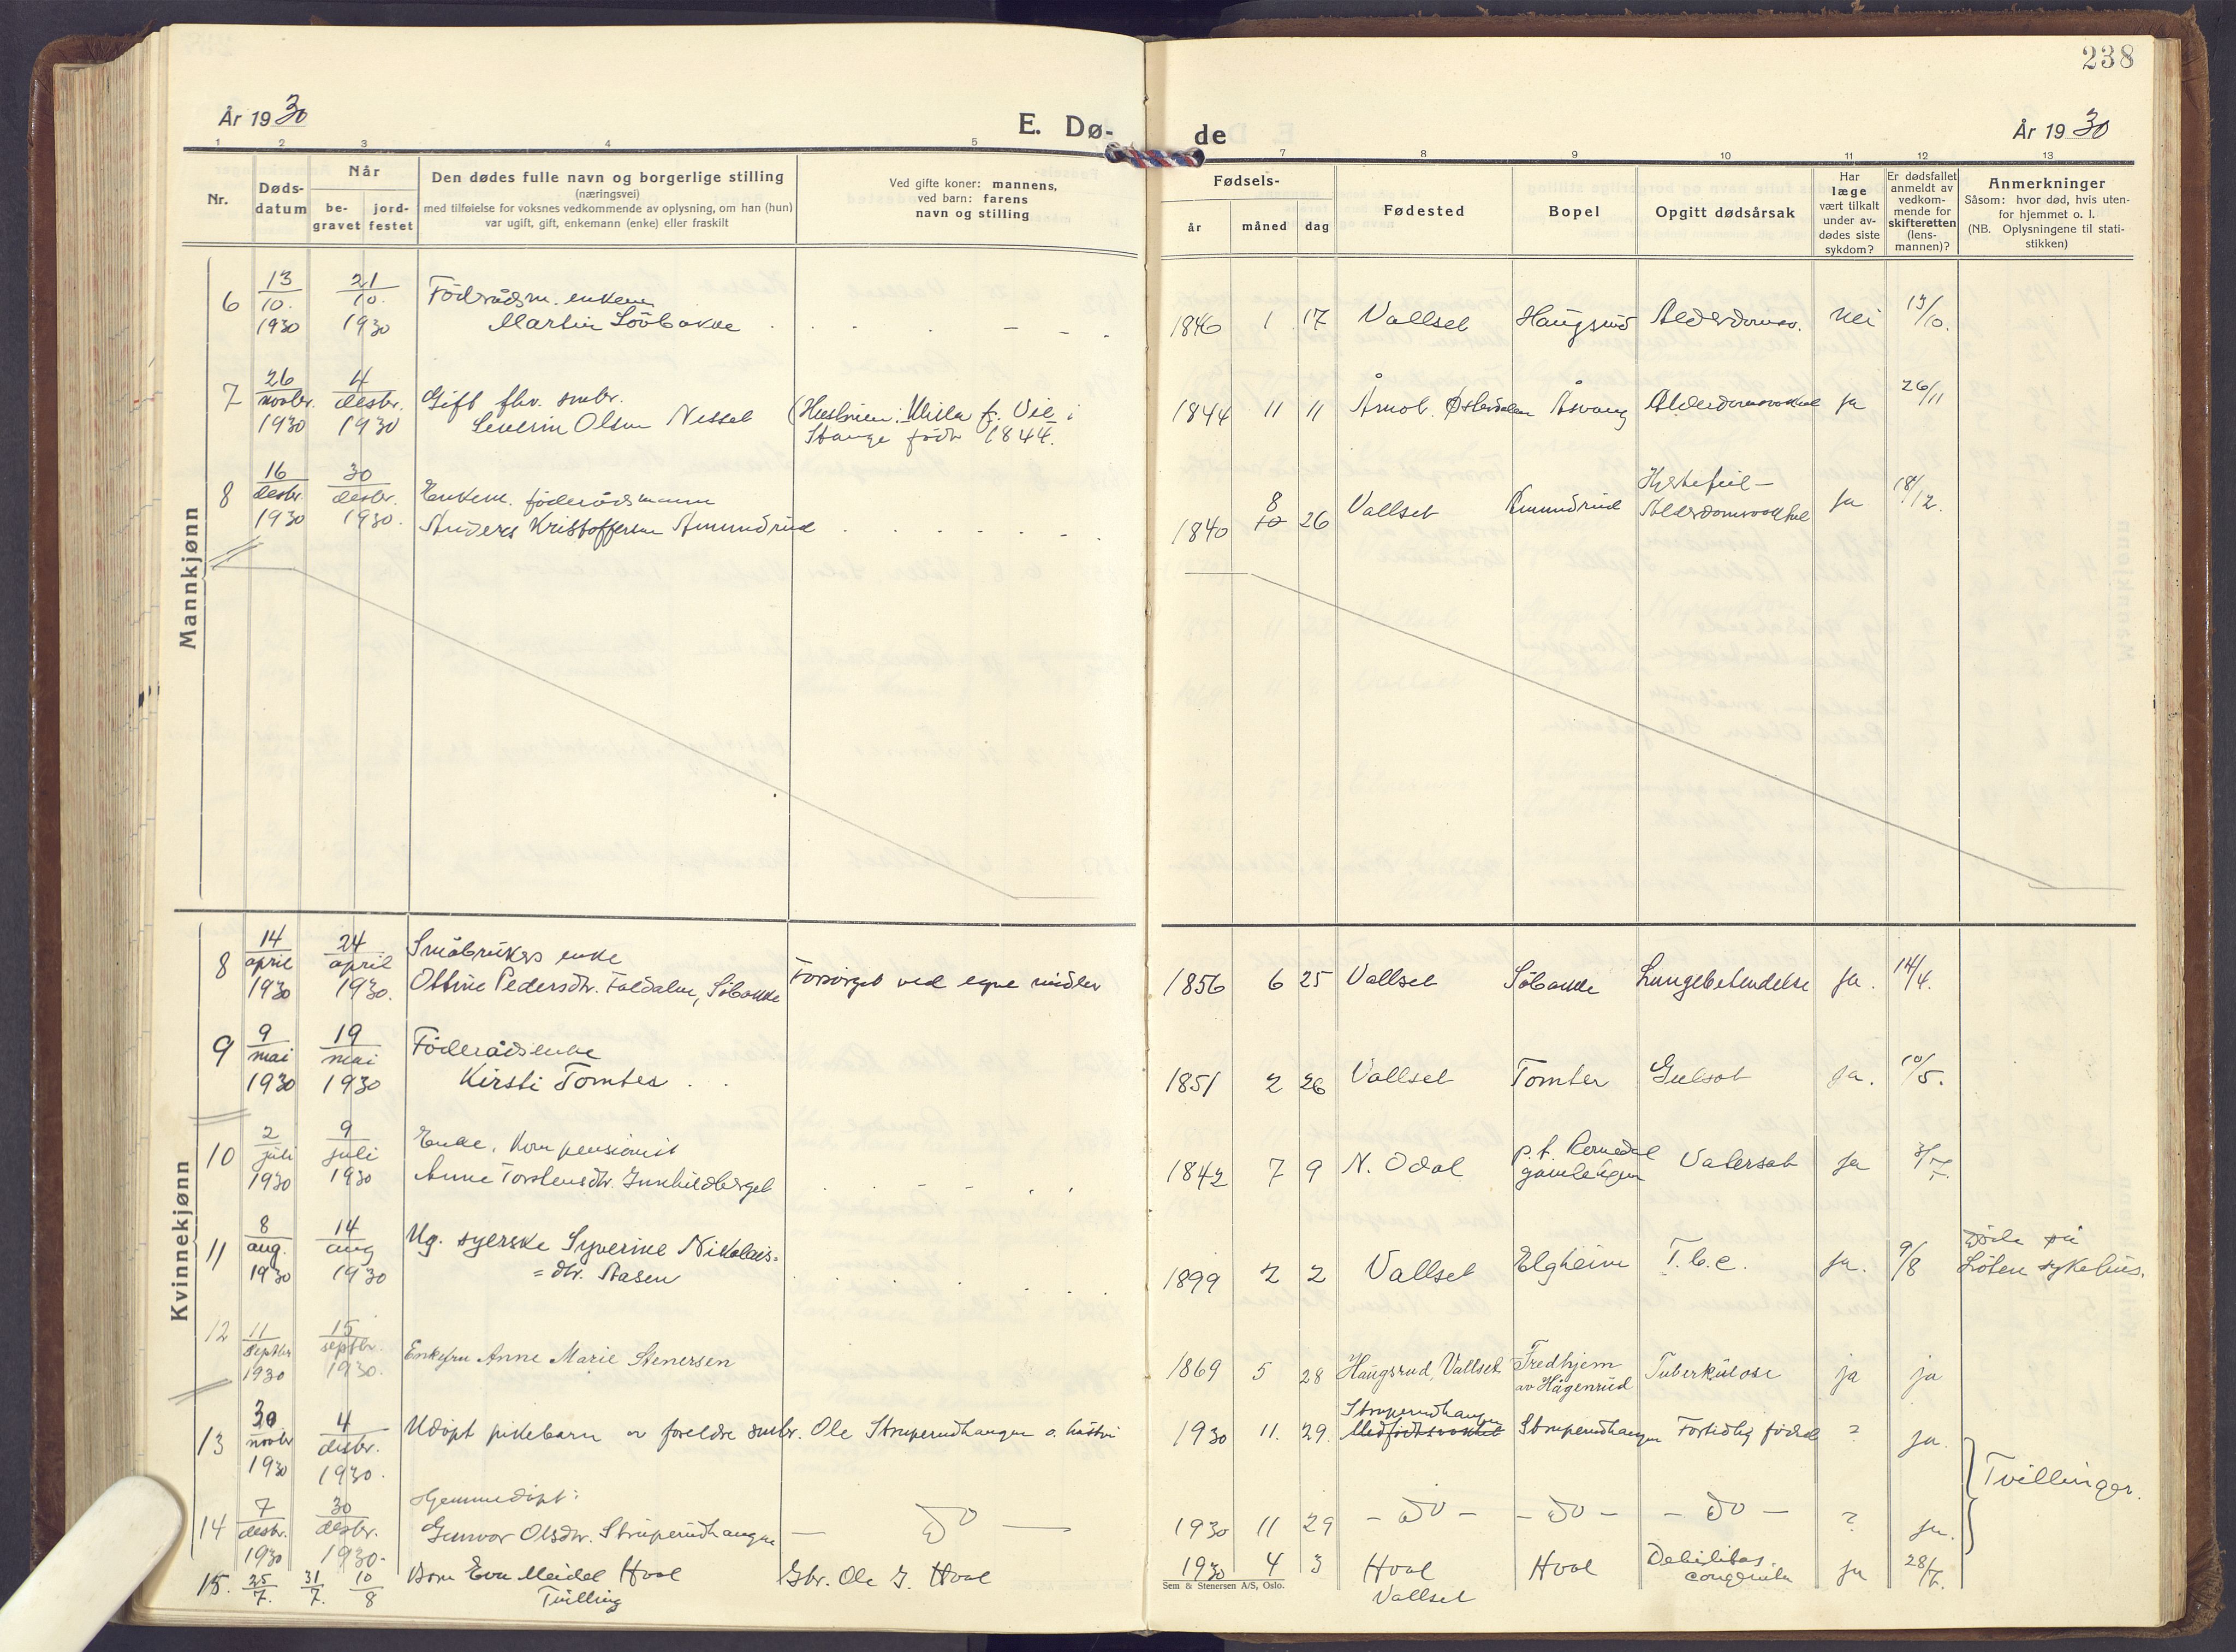 238
År 1930
E. Dø-
de
År 1930
1 2 3 4 5 7 8 9 10 11 12 13
Nr.
Døds-
datum
Når
be-
gravet
jord-
festet
Den dødes fulle navn og borgerlige stilling
(næringsvei)
med tilføielse for voksnes vedkommende av oplysning, om han (hun)
var ugift, gift, enkemann (enke) eller fraskilt
Ved gifte koner: mannens,
ved barn: farens
navn og stilling
Fødsels-
år
måned
dag
Fødested
Bopel
Opgitt dødsårsak
Har
læge
vært tilkalt
under av-
dødes siste
sykdom?
Er dødsfallet
anmeldt av
vedkom-
mende for
skifteretten
(lens-
mannen)?
Anmerkninger
Såsom: hvor død, hvis uten-
for hjemmet o. l.
(NB. Oplysningene til stati-
stikken)
Mannkjønn
6 13/10. 1930 21/10. 1930 Föderådsm. enkem.
Martin Sööbakke 1846 1 17 Vallset Haugsrud Alderdomss. nei 13/10.
7 26/novbr. 1930 4/desbr. 1930 Gift fhv. smbr.
Severin Olsen Nesset (Hustruen: f. Vie i
Stange födt 1844. 1844 11 11 Åmot. Østerdalen Åsvang Alderdomssvakhet ja 26/11
8 16/desbr. 1930 30/desbr. 1930. Enkem. föderådsmann
Anders Kristoffersen Amundrud 1840 8 10 26 Vallset Amundrud Hjertefeil –
Alderdomssvakhet ja 18/12.
Kvinnekjønn
8 14/april 1930 24/april 1930. Småbrukers enke
Ottine Pedersdtr. Faldalen, Söbakke Forsörget ved egne midler 1856 6 25 Vallset Söbakke Lungebetendelse ja. 14/4.
9 9/mai 1930 19/mai 1930 Föderådsenke
Kirsti Tomter 1851 2 26 Vallset Tomter Gulsot ja. 10/5.
10 2/juli 1930 9/juli 1930 Enke, kom pensionist
Anne Torstensdtr. Gunhildberget 1842 7 9 N. Odal p.t. Romedal
gamlehjem ja 3/7.
11 8/aug. 1930 14/aug 1930 Ug. syerske Syverine Nikolais=
=dtr. Aasen 1899 2 2 Vallset Elgheim T.b.c. ja. 9/8 döde på
Löten sykehus.
12 11/septbr 1930 15/septbr. 1930. Enkefru Anne Marie Stenersen 1869 5 28 Haugsrud, Vallset. Fredhjem
av Hågenrud Tuberkulose ja ja
13 30/novbr 1930 4/desbr. 1930. Udöpt pikebarn av foreldre smbr. Ole Struperudhaugen o. hustru 1930 11. 29. Struperudhaugen
Medfödt svakhet Struperudhaugen Fortidlig födsel ? ja.
Tvillinger.
14 7/desbr. 1930 30/desbr. 1930. Hjemmedöpt:
Gunvor Olsdtr. Struperudhaugen — do — 1930 11 29 – do – – do – – do – ? ja.
15. 25/7. 31/7. 10/8 Barn Eva Meidel Hval Gbr. Ole J. Hval 1930 4 3 Hval Hval Debilitas
congenita ja 28/7.
Tvilling Vallset
Sem & Stenersen A/S, Oslo.